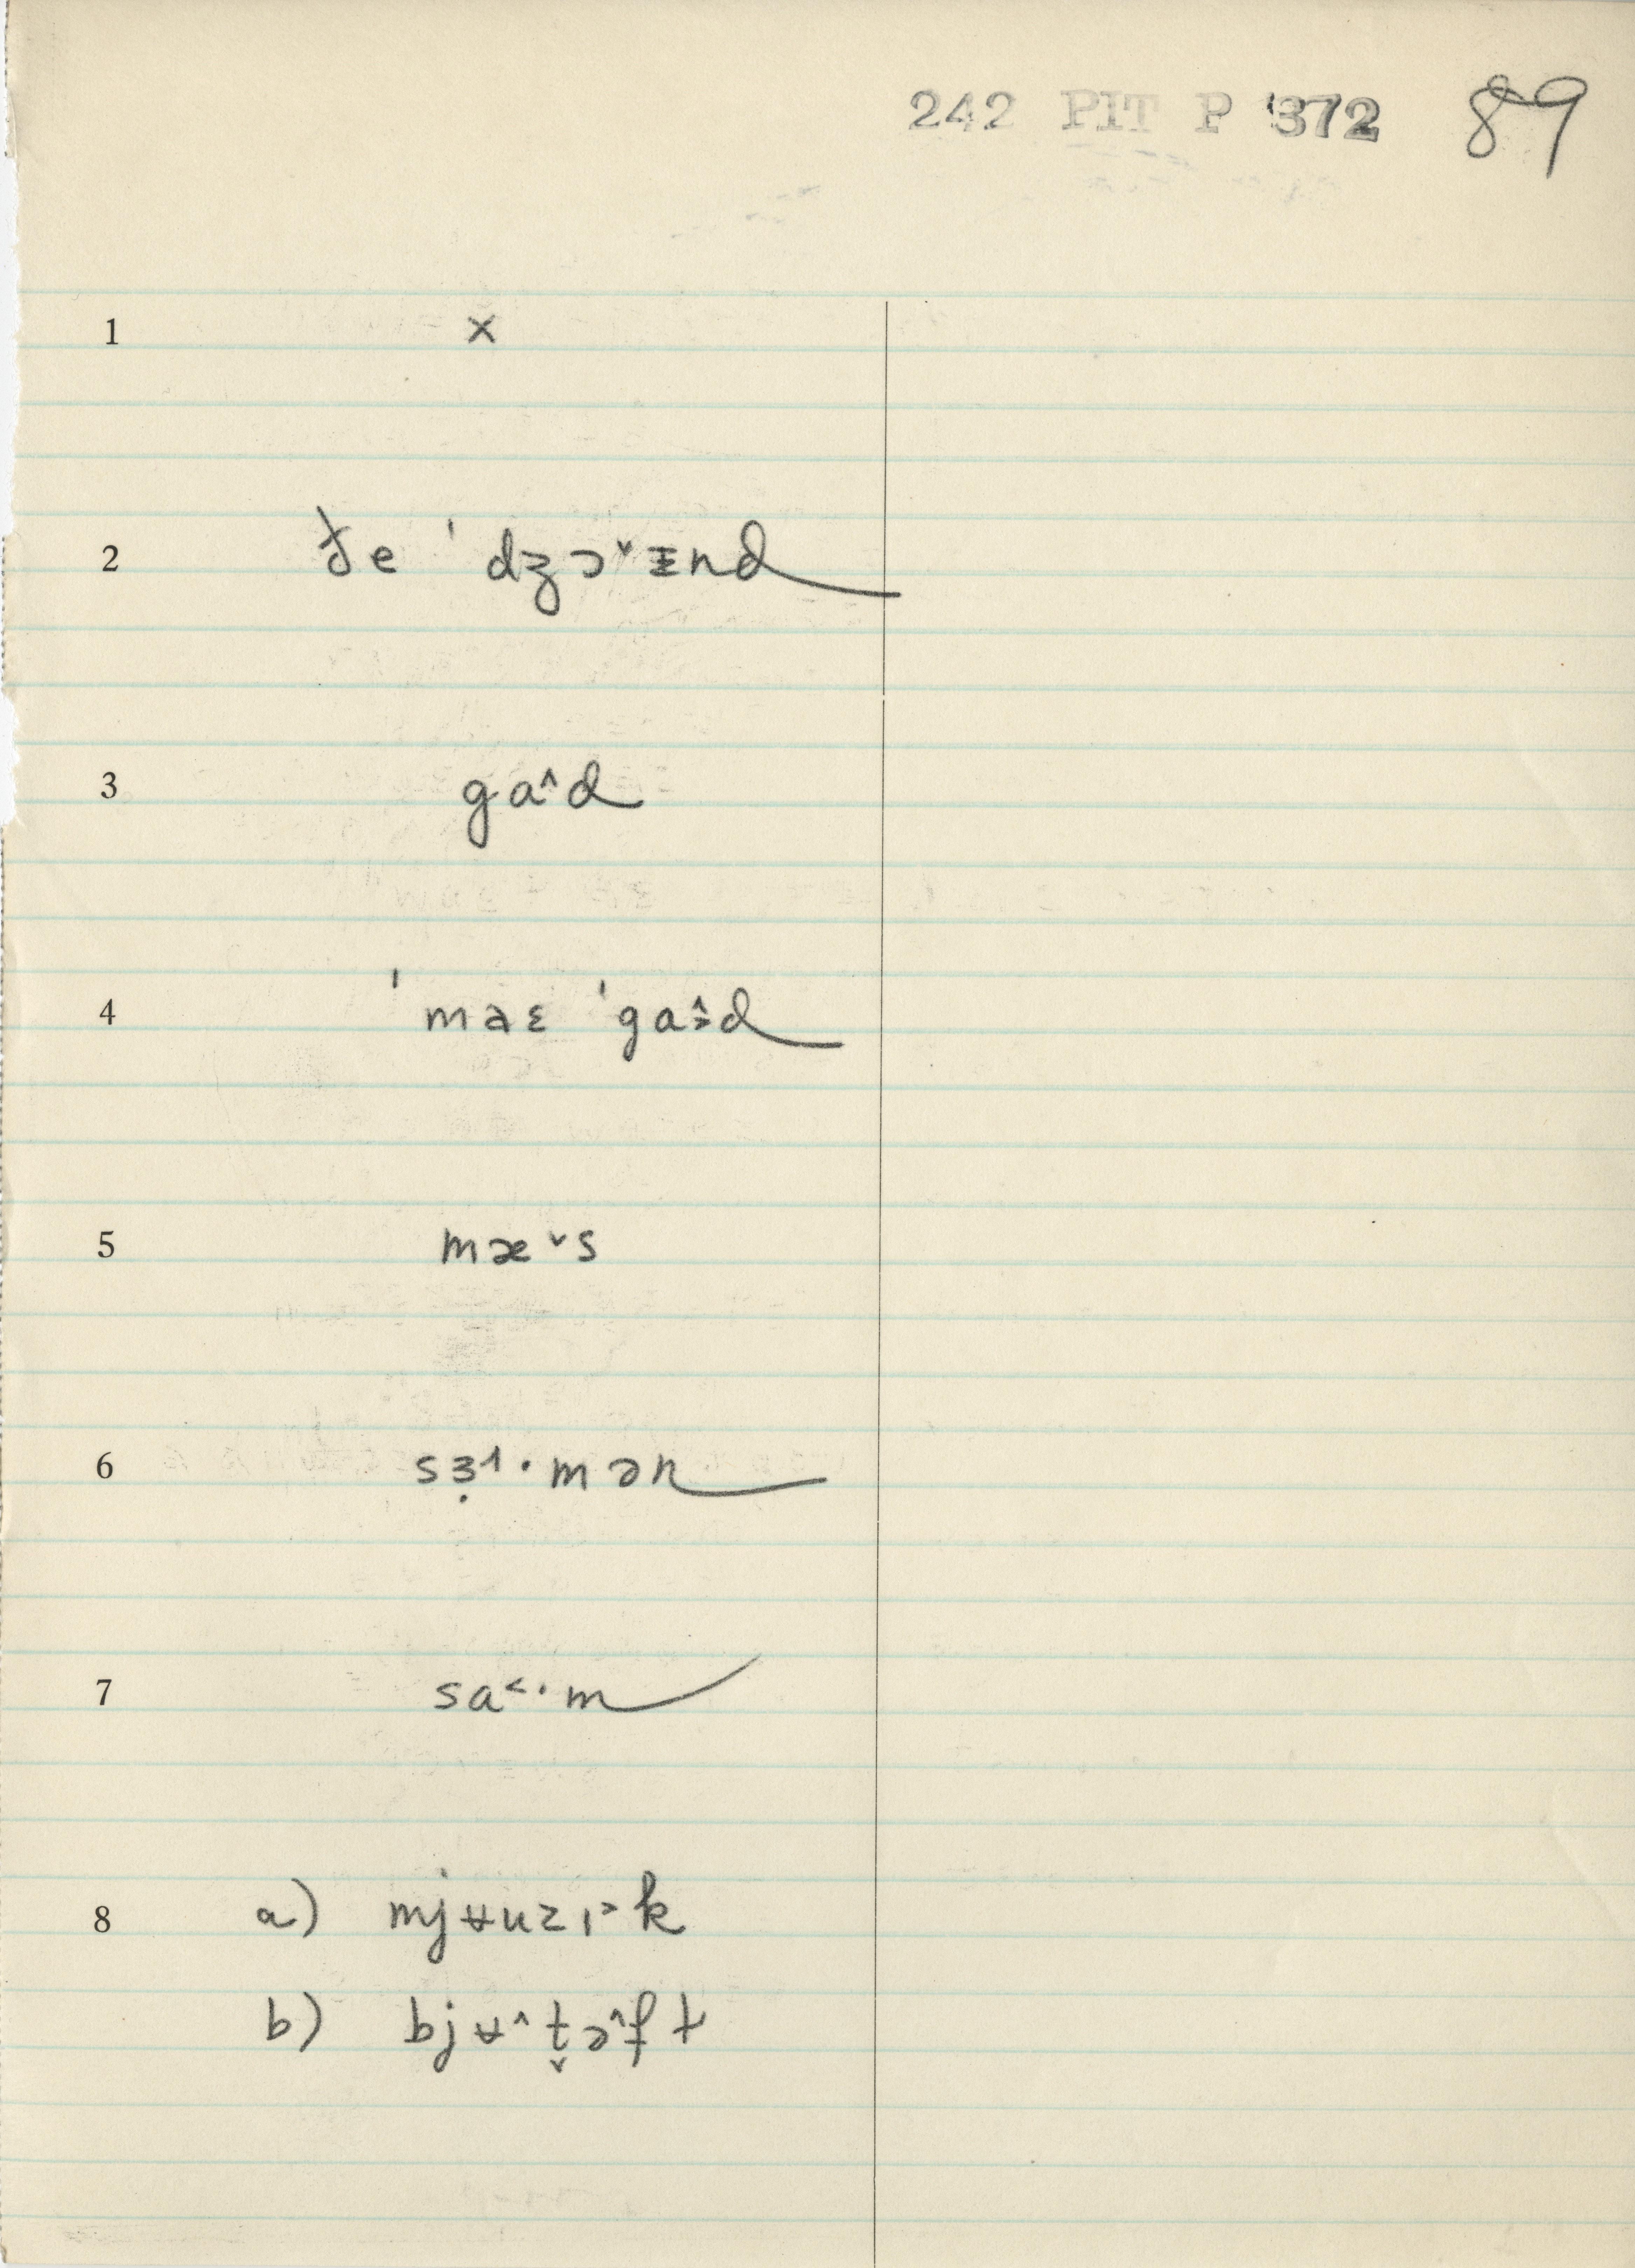 242 PIT P '372 89
1 x
2 ðe ˈdʒɔ˅ɪnd
3 ga˄d
4 ˈmaɛ ˈga˄ɚd
5 mæ˅s
6 sɜ̣˦·mən
7 sa˂·m
8 a) mjʉuzɪ˃k
b) bjʉ˄t̬ə˄fɫ